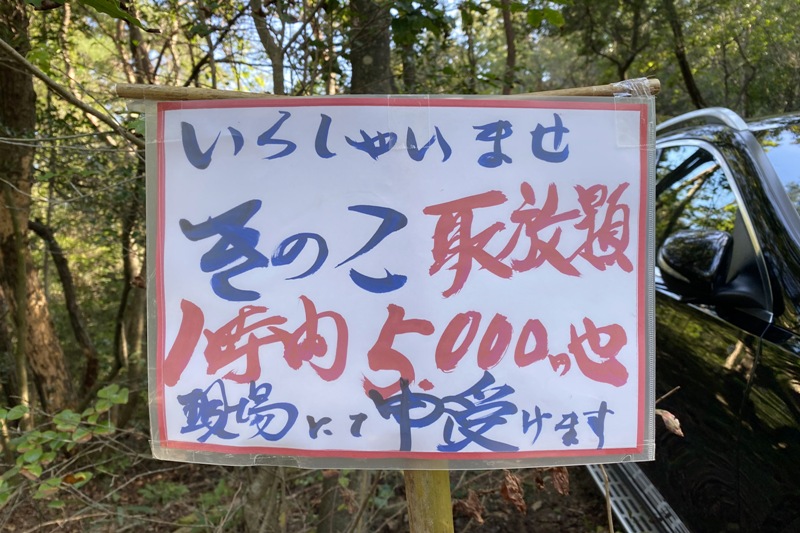 いらしゃいませ
きのこ取放題
1時内 5.000円也
現場にて申受けます